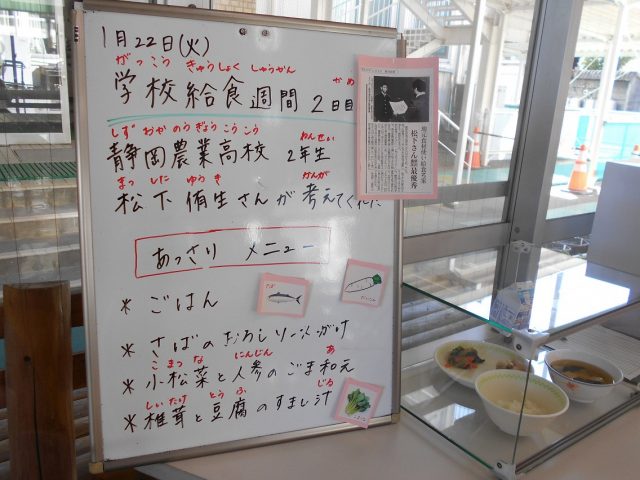 1月22日(火)
がっこう きゅうしょく しゅうかん かめ
学校給食週間 2日目
しずおかのうぎょうこうこう ねんせい
静岡農業高校 2年生
まつした ゆうき かんが
松下侑生さんが考えてくれた
あっさり メニュー
* ごはん
* さばのおろしソースがけ
こまつな にんじん あ
* 小松菜と人参のごま和え
しいたけ とうふ じる
* 椎茸と豆腐のすまし汁
地元食材使い給食考案
松下さん最優秀
さば
だいこん